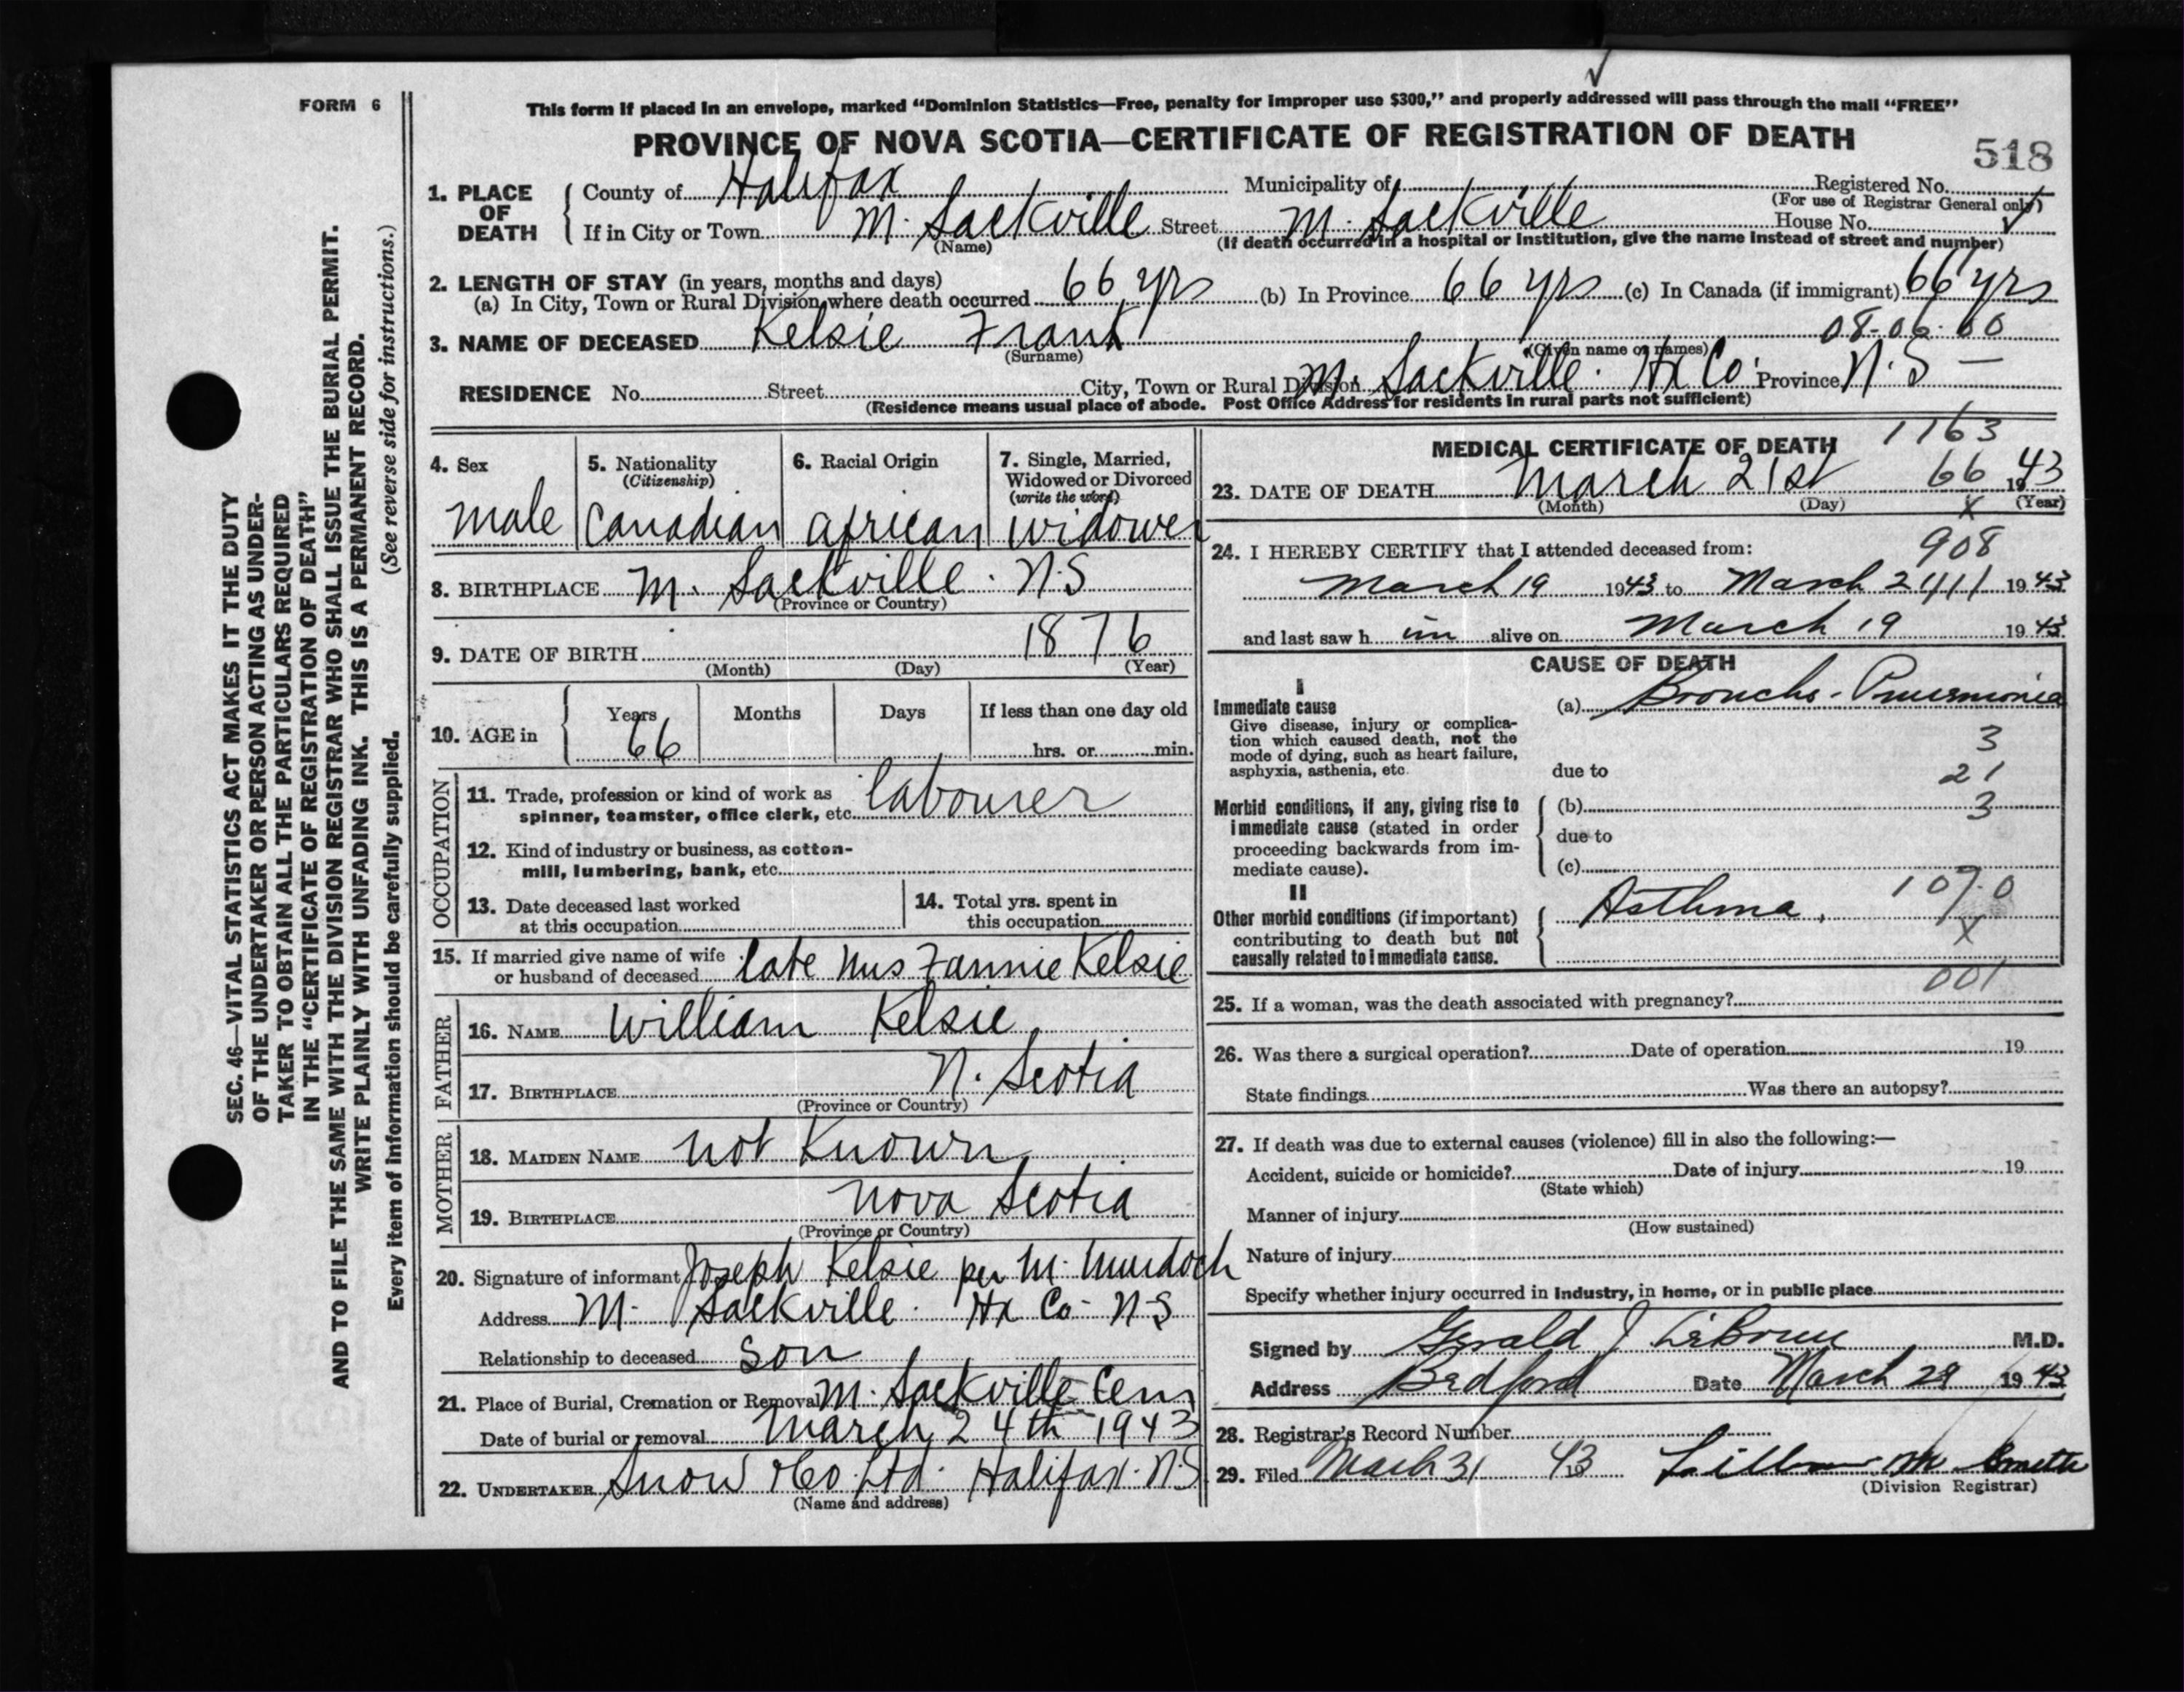 FORM 6
This form if placed in an envelope, marked “Dominion Statistics—Free, penalty for improper use $300,” and properly addressed will pass through the mail “FREE”
PROVINCE OF NOVA SCOTIA—CERTIFICATE OF REGISTRATION OF DEATH
518
1. PLACE OF DEATH
County of Halifax Municipality of Registered No.
(For use of Registrar General only)
If in City or Town M. Sackville Street M. Sackville House No.
(Name) (If death occurred in a hospital or institution, give the name instead of street and number)
2. LENGTH OF STAY (in years, months and days)
(a) In City, Town or Rural Division where death occurred 66 yrs (b) In Province 66 yrs (c) In Canada (if immigrant) 66 yrs
08-06-00
3. NAME OF DECEASED Kelsie Frank
(Surname) (Given name or names)
RESIDENCE No. Street City, Town or Rural Division M. Sackville. Hx Co. Province N.S —
(Residence means usual place of abode. Post Office Address for residents in rural parts not sufficient)
4. Sex
male
5. Nationality
(Citizenship)
Canadian
6. Racial Origin
African
7. Single, Married,
Widowed or Divorced
(write the word)
widower
8. BIRTHPLACE M. Sackville. N.S
(Province or Country)
9. DATE OF BIRTH 1876
(Month) (Day) (Year)
10. AGE in
Years Months Days If less than one day old
66 hrs. or min.
OCCUPATION
11. Trade, profession or kind of work as
spinner, teamster, office clerk, etc. labourer
12. Kind of industry or business, as cotton-
mill, lumbering, bank, etc.
13. Date deceased last worked
at this occupation
14. Total yrs. spent in
this occupation
15. If married give name of wife
or husband of deceased late Mrs Fannie Kelsie
FATHER
16. NAME William Kelsie
17. BIRTHPLACE N. Scotia
(Province or Country)
MOTHER
18. MAIDEN NAME not Known
19. BIRTHPLACE Nova Scotia
(Province or Country)
20. Signature of informant Joseph Kelsie per M. Murdoch
Address M. Sackville. Hx Co- N-S
Relationship to deceased Son
21. Place of Burial, Cremation or Removal M. Sackville Cem
Date of burial or removal March 24th 1943
22. UNDERTAKER Snow & Co. Ltd. Halifax. N.S.
(Name and address)
MEDICAL CERTIFICATE OF DEATH
1163
66
23. DATE OF DEATH March 21st 1943
(Month) (Day) (Year)
x
24. I HEREBY CERTIFY that I attended deceased from:
908
March 19 1943 to March 21 1943
and last saw h im alive on March 19 1943
CAUSE OF DEATH
I
Immediate cause
Give disease, injury or complica-
tion which caused death, not the
mode of dying, such as heart failure,
asphyxia, asthenia, etc.
(a) Broncho-Pneumonia
3
due to 21
Morbid conditions, if any, giving rise to
immediate cause (stated in order
proceeding backwards from im-
mediate cause).
(b) 3
due to
(c)
II
Other morbid conditions (if important)
contributing to death but not
causally related to immediate cause.
Asthma, 107.0
x
001
25. If a woman, was the death associated with pregnancy?
26. Was there a surgical operation? Date of operation 19
State findings Was there an autopsy?
27. If death was due to external causes (violence) fill in also the following:—
Accident, suicide or homicide? Date of injury 19
(State which)
Manner of injury
(How sustained)
Nature of injury
Specify whether injury occurred in industry, in home, or in public place
Signed by Gerald J M.D.
Address Bedford Date March 29 1943
28. Registrar's Record Number
29. Filed March 31 1943
(Division Registrar)
SEC. 46—VITAL STATISTICS ACT MAKES IT THE DUTY
OF THE UNDERTAKER OR PERSON ACTING AS UNDER-
TAKER TO OBTAIN ALL THE PARTICULARS REQUIRED
IN THE “CERTIFICATE OF REGISTRATION OF DEATH”
AND TO FILE THE SAME WITH THE DIVISION REGISTRAR WHO SHALL ISSUE THE BURIAL PERMIT.
WRITE PLAINLY WITH UNFADING INK. THIS IS A PERMANENT RECORD.
Every item of information should be carefully supplied. (See reverse side for instructions.)